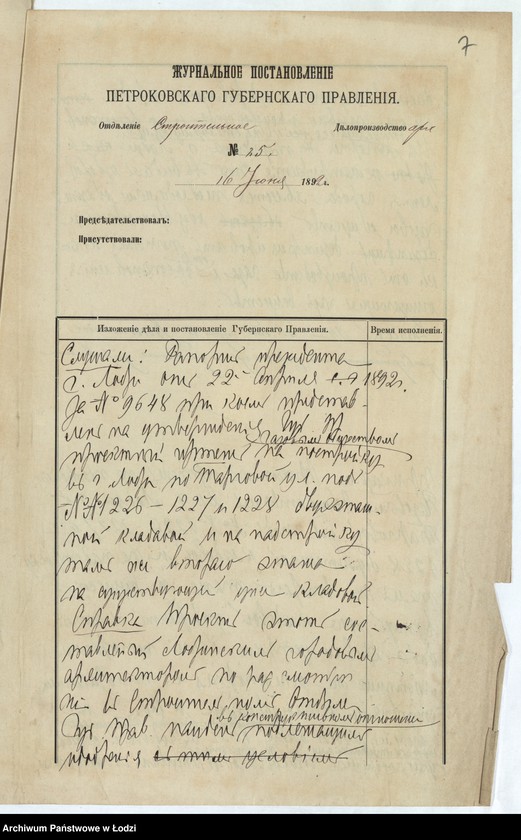 7
ЖУРНАЛЬНОЕ ПОСТАНОВЛЕНІЕ
ПЕТРОКОВСКАГО ГУБЕРНСКАГО ПРАВЛЕНІЯ.
Отдѣленіе Строительное Дѣлопроизводство
№ 25.
16 Іюня 1892 г.
Предсѣдательствовалъ:
Присутствовали:
Изложеніе дѣла и постановленіе Губернскаго Правленія. Время исполненія.
Слушали: Рапортъ президента
г. Лодзи отъ 22 Апрѣля 1892 г.
за № 9648 при коемъ представ-
ленъ на утвержденіе Губ. Пр.
Газовымъ Обществомъ
проектъ на постройку
въ г. Лодзи по Тарговой ул. подъ
№№ 1226 – 1227 и 1228 двухэтаж-
ной кладовой и на надстройку
таковаго втораго этажа
на существующей кладовой.
Справка Проектъ этотъ сос-
тавленный Лодзинскимъ городовымъ
архитекторомъ по разсмотрѣ-
ніи въ Строительномъ Отдѣл.
въ конструктивномъ отношеніи
Губ. Прав. найденъ подлежащимъ
одобренію съ тѣмъ условіемъ
Archiwum Państwowe w Łodzi